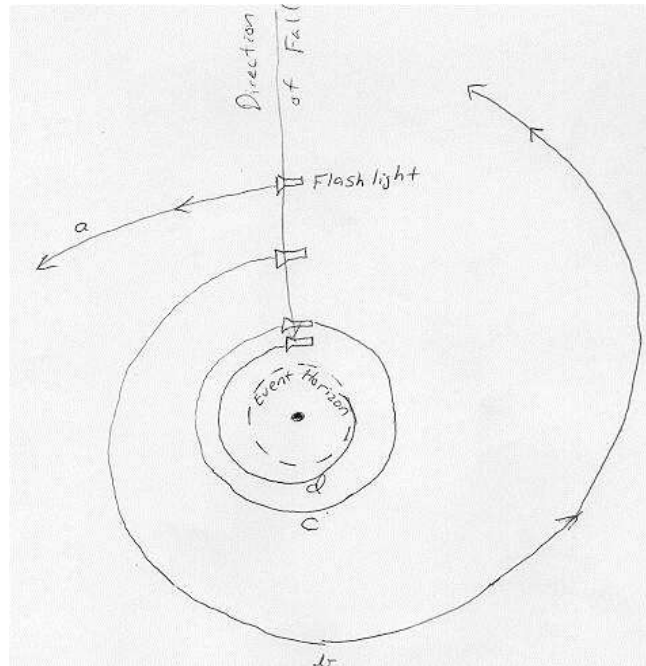 Direction
of Fall
Flashlight
a
Event Horizon
d
c
b